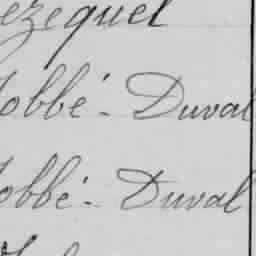 ezequel
Jobbé-Duval
Jobbé-Duval